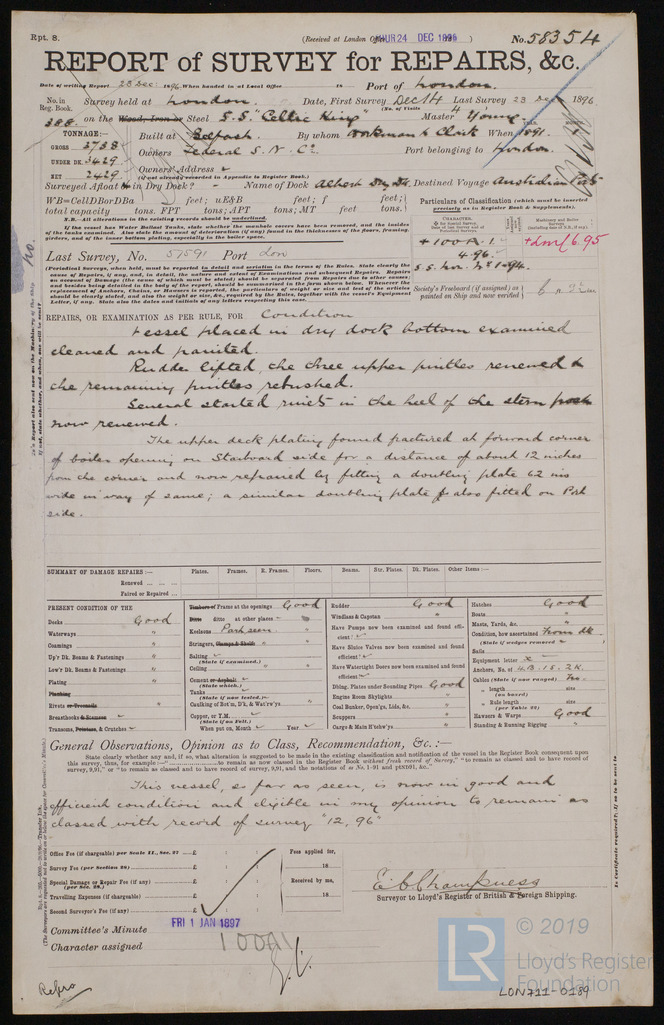 Rpt. 8.
(Received at London Office THUR 24 DEC 1896)
No. 58354
REPORT of SURVEY for REPAIRS, &c.
Date of writing Report 23 Dec: 1896 When handed in at Local Office 18 Port of London.
No. in Reg. Book. Survey held at London. Date, First Survey Dec 14 Last Survey 23 Dec 1896
(No. of Visits 4
388. on the Wood, Iron or Steel S.S. "Celtic King" Master Young
TONNAGE:— Built at Belfast. By whom Workman & Clark When 1891.
GROSS 3738 Owners Federal S. N. Co. Port belonging to London.
UNDER DK. 3429
NET 2429 Owners' Address
(if not already recorded in Appendix to Register Book.)
Surveyed Afloat or in Dry Dock? Name of Dock Albert Dry Dk. Destined Voyage Australian Ports
WB=CellDBorDBa feet; uE&B feet; f feet;
total capacity tons. FPT tons; APT tons; MT feet tons.
N.B.—All alterations in the existing records should be underlined.
Particulars of Classification (which must be inserted precisely as in Register Book & Supplements).
+100A.1.
4.96.
S.S. Lon. No 1-94.
+LMC 6.95
Last Survey, No. 57591 Port Lon
Society's Freeboard (if assigned) as painted on Ship and now verified
REPAIRS, OR EXAMINATION AS PER RULE, FOR Condition
Vessel placed in dry dock bottom examined
cleaned and painted.
Rudder lifted, the three upper pintles renewed &
the remaining pintles rebushed.
Several started rivets in the heel of the stern post
now renewed.
The upper deck plating found fractured at forward corner
of boiler opening on Starboard side for a distance of about 12 inches
from the corner and now repaired by fitting a doubling plate 62 ins
wide in way of same; a similar doubling plate also fitted on Port
side.
SUMMARY OF DAMAGE REPAIRS:— Plates. Frames. R. Frames. Floors. Beams. Str. Plates. Dk. Plates. Other Items:—
Renewed ... ...
Faired or Repaired ...
PRESENT CONDITION OF THE
Decks Good
Waterways "
Coamings "
Up'r Dk. Beams & Fastenings "
Low'r Dk. Beams & Fastenings "
Plating "
Planking
Rivets or Treenails "
Breasthooks & Stemson
Transoms, Pointers, & Crutches
Timbers of Frame at the openings Good
Ditto ditto at other places "
Keelsons Part seen
Stringers, Clamps & Shelfs
Salting
(State if examined.)
Ceiling "
Cement or Asphalt
(State which.)
Tanks
(State if now tested.)
Caulking of Bot'm, D'k, & Wat'rw'ys
Copper, or Y.M.
(State if on Felt.)
When put on, Month Year
Rudder Good
Windlass & Capstan "
Have Pumps now been examined and found efficient?
Have Sluice Valves now been examined and found efficient?
Have Watertight Doors now been examined and found efficient?
Dblng. Plates under Sounding Pipes Good
Engine Room Skylights "
Coal Bunker, Open'gs, Lids, &c. "
Scuppers "
Cargo & Main H'tchw'ys "
Hatches Good
Boats "
Masts, Yards, &c. "
Condition, how ascertained From dk
(State if wedges removed
Sails
Equipment letter
Anchors, No. of 4.B. 1S. 2K.
Cables (State if now ranged)
" length size
(on board)
" Rule length size
(per Table 22)
Hawsers & Warps Good
Standing & Running Rigging "
General Observations, Opinion as to Class, Recommendation, &c. :—
This vessel, so far as seen, is now in good and
efficient condition and eligible in my opinion to remain as
classed with record of survey "12, 96"
Office Fee (if chargeable) per Scale II., Sec. 27 ... £
Survey Fee (per Section 28) £
Special Damage or Repair Fee (if any) £
(per Sec. 28.)
Travelling Expenses (if chargeable) £
Second Surveyor's Fee (if any) £
Fees applied for,
18
Received by me,
18
E C Champness
Surveyor to Lloyd's Register of British & Foreign Shipping.
Committee's Minute FRI 1 JAN 1897
Character assigned 100A1
© 2019
LR
Lloyd's Register
Foundation
LON711-0189